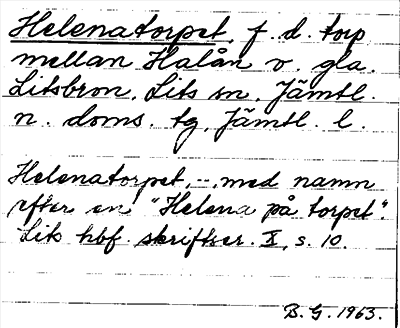 Helenatorpet, f. d. torp
mellan Halån o. gla.
Litsbron, Lits sn, Jämtl.
n. doms. tg, Jämtl. l.
Helenatorpet, --, med namn
efter en "Helena på torpet".
Lits hbf. skriftser. X, s. 10.
B. G. 1963.